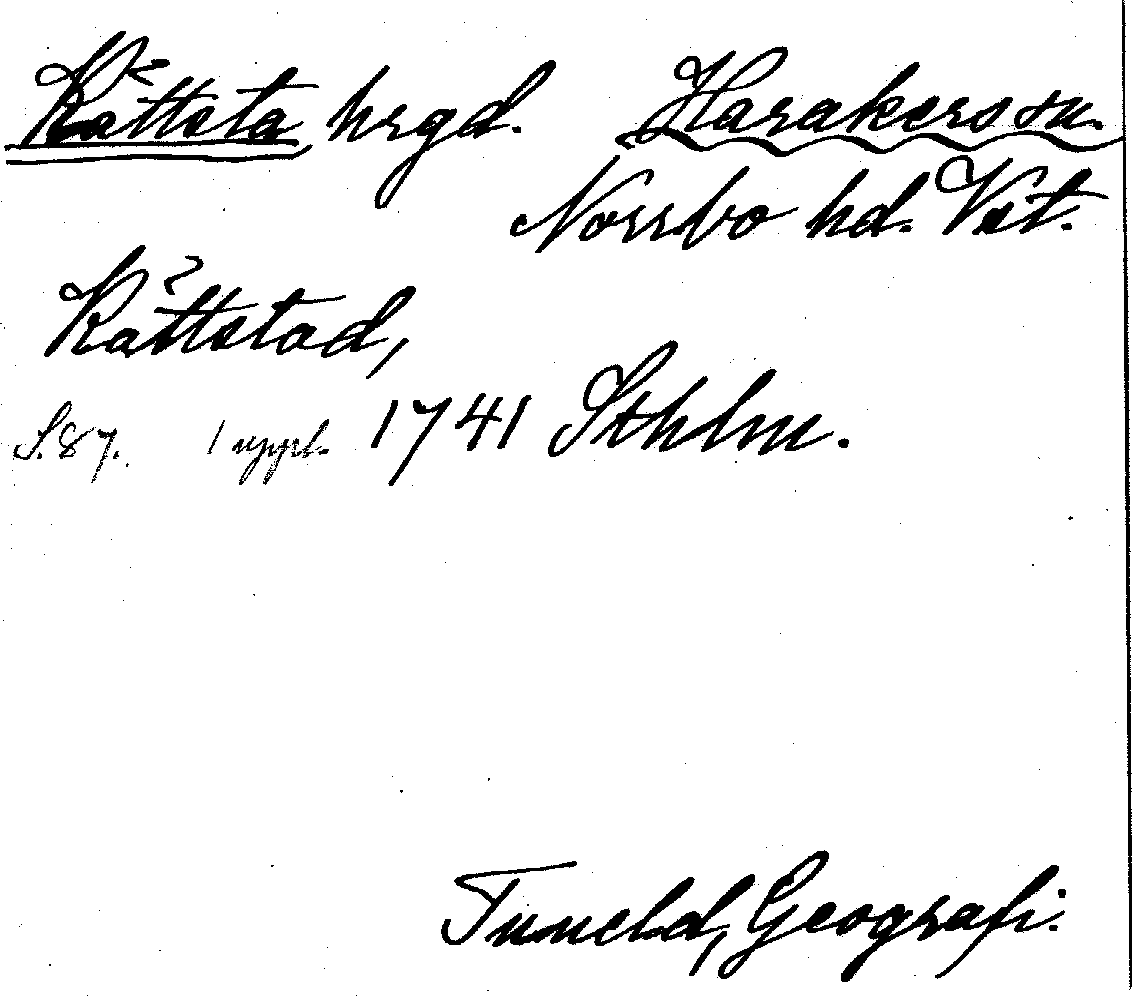 Råttsta hrgd. Harakers sn.
Norrbo hd. Vstm.
Råttstad,
S. 87. 1 uppl. 1741 Sthlm.
Tuneld, Geografi.